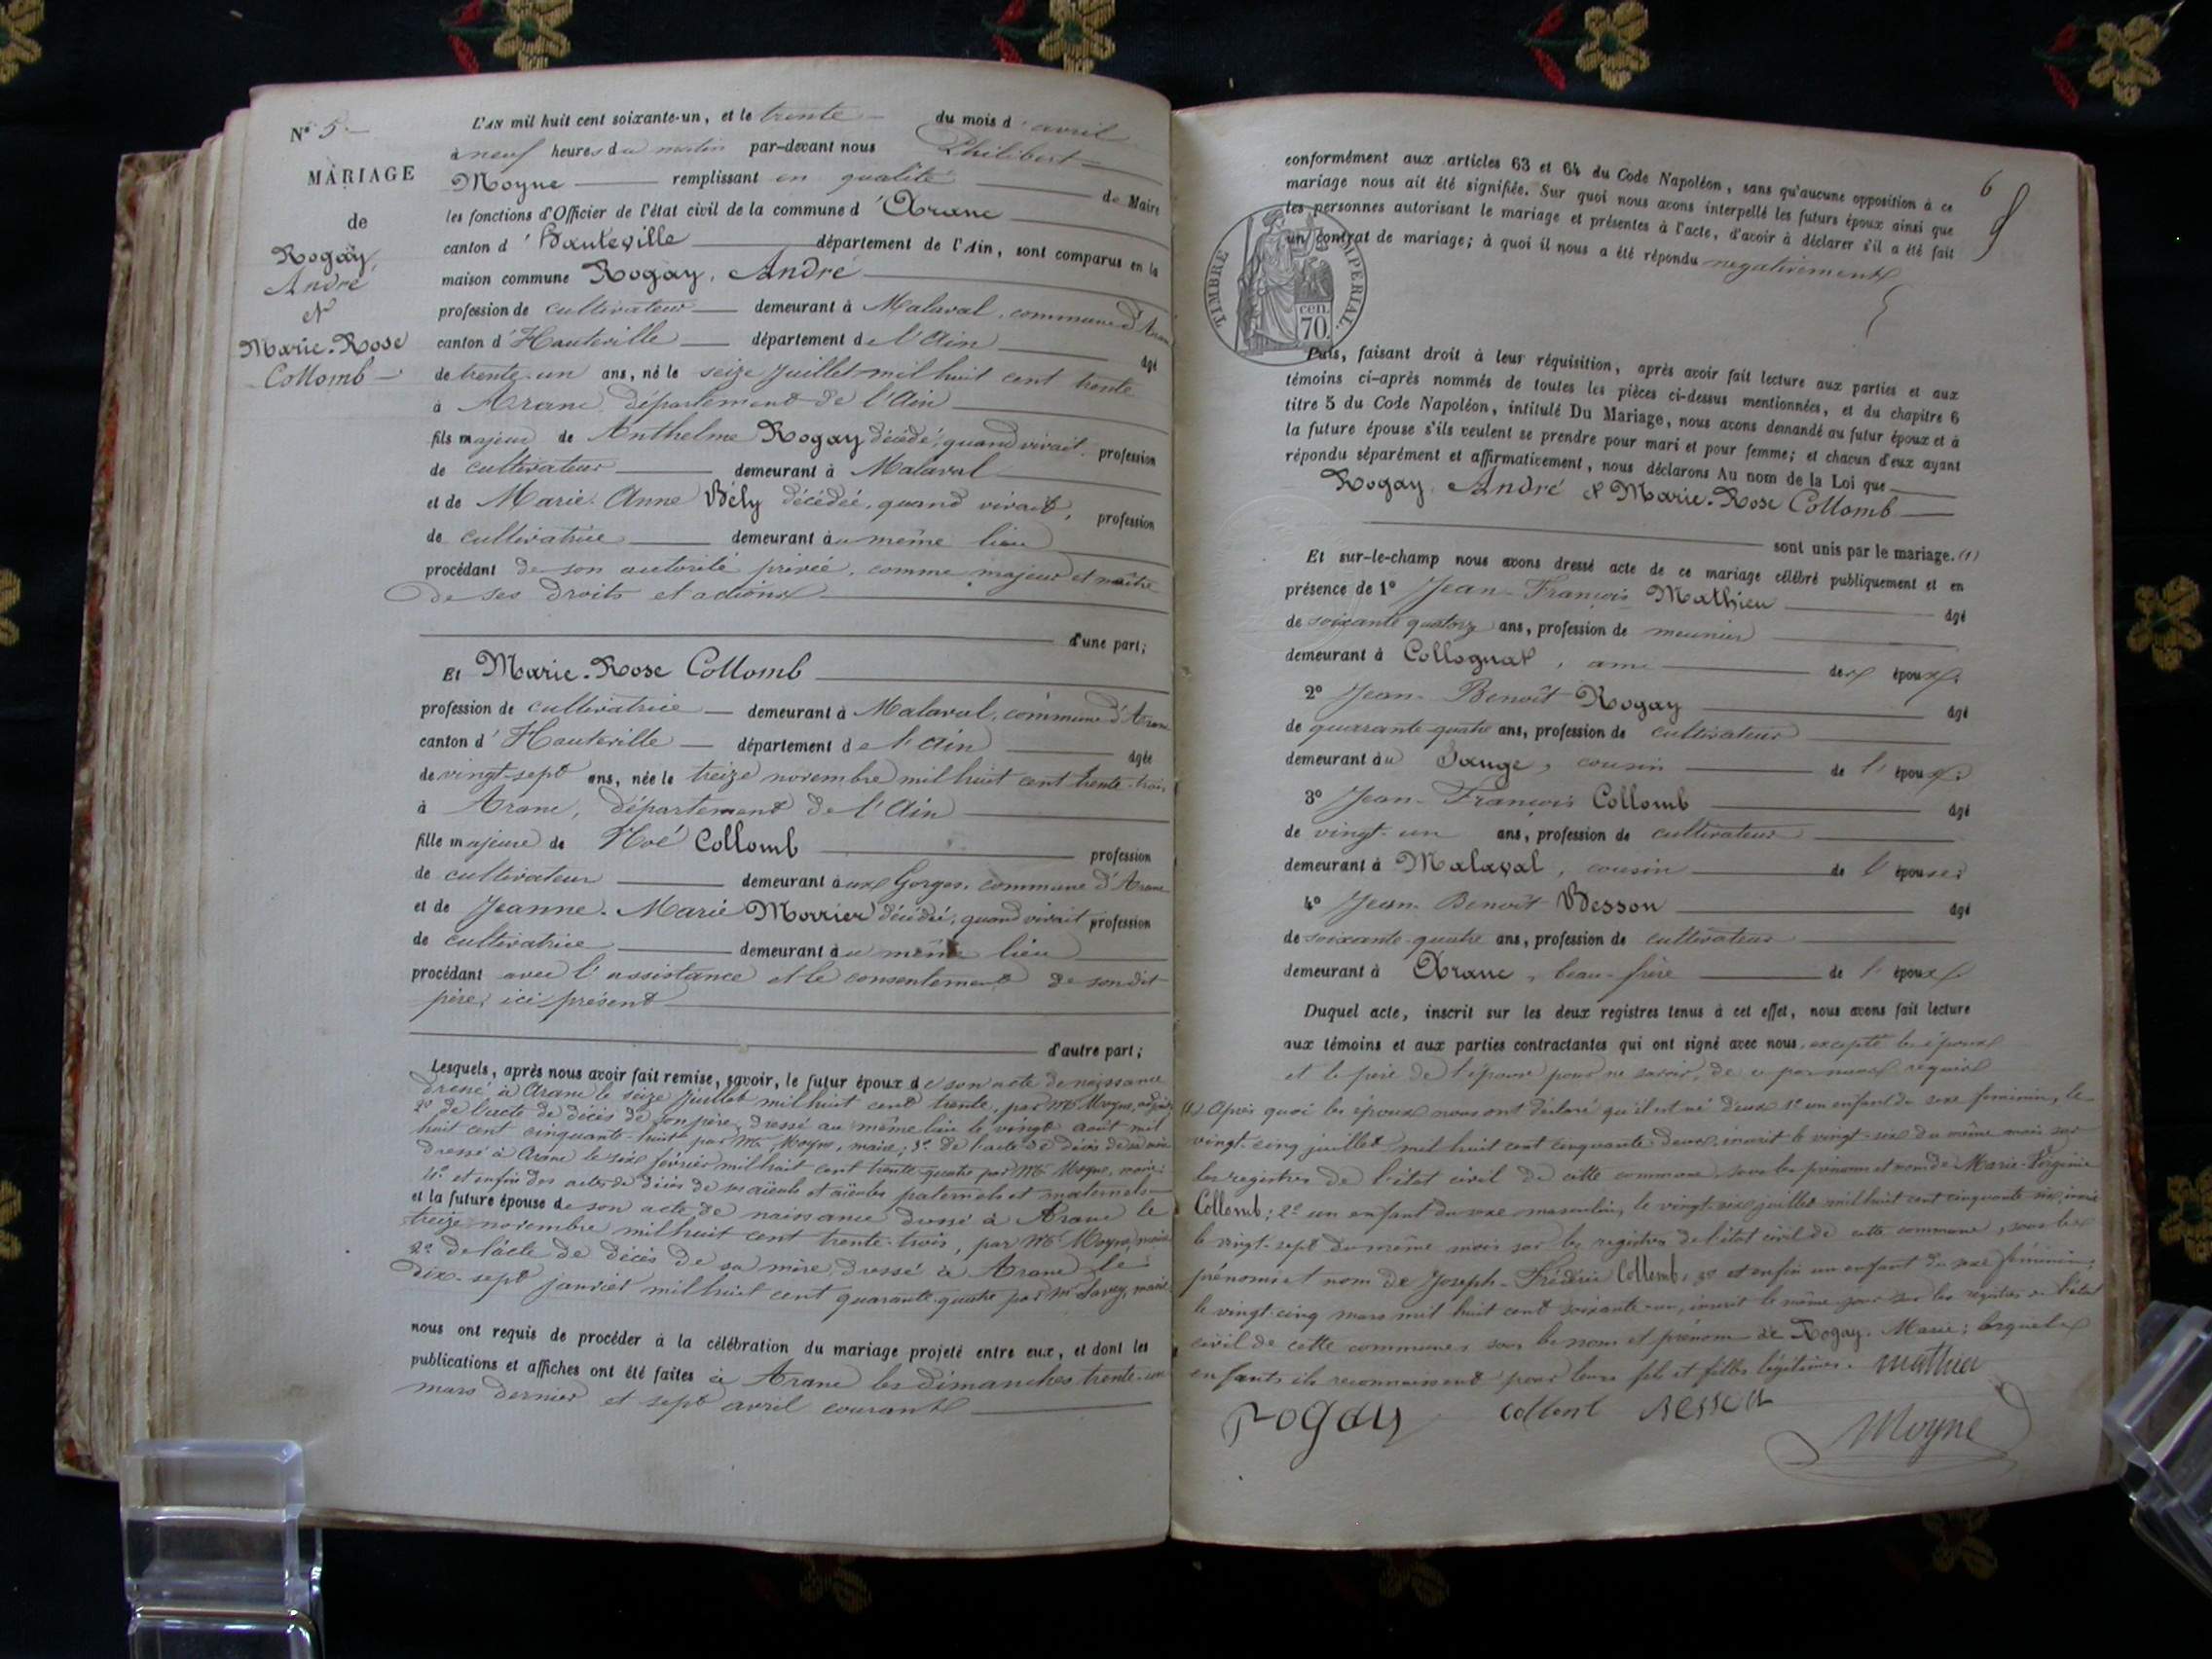 N° 5
MARIAGE
de
Rogay,
André
et
Marie-Rose
Collomb
L'AN mil huit cent soixante-un, et le trente du mois d'avril
à neuf heures du matin par-devant nous Philibert
Moyne remplissant en qualité de Maire
les fonctions d'Officier de l'état civil de la commune d'Aranc
canton d'Hauteville département de l'Ain, sont comparus en la
maison commune Rogay, André
profession de cultivateur demeurant à Malaval, commune d'Aranc
canton d'Hauteville département de l'Ain âgé
de trente-un ans, né le seize juillet mil huit cent trente
à Aranc, département de l'Ain
fils majeur de Anthelme Rogay décédé, quand vivait, profession
de cultivateur demeurant à Malaval
et de Marie-Anne Bély décédée, quand vivait, profession
de cultivatrice demeurant au même lieu
procédant de son autorité privée, comme majeur et maître
de ses droits et actions
d'une part;
Et Marie-Rose Collomb
profession de cultivatrice demeurant à Malaval, commune d'Aranc
canton d'Hauteville département de l'Ain âgée
de vingt-sept ans, née le treize novembre mil huit cent trente-trois
à Aranc, département de l'Ain
fille majeure de Noé Collomb profession
de cultivateur demeurant aux Gorges, commune d'Aranc
et de Jeanne-Marie Morrier décédée, quand vivait profession
de cultivatrice demeurant au même lieu
procédant avec l'assistance et le consentement de sondit
père, ici présent
d'autre part;
Lesquels, après nous avoir fait remise, savoir, le futur époux de son acte de naissance
dressé à Aranc le seize juillet mil huit cent trente, par Mr Moyne, adjoint
2° de l'acte de décès de son père, dressé au même lieu le vingt août mil
huit cent cinquante-huit par Mr Moyne, maire; 3° de l'acte de décès de sa mère
dressé à Aranc le six février mil huit cent trente-quatre par Mr Moyne, maire;
4° et enfin des actes de décès de ses aïeuls et aïeules paternels et maternels
et la future épouse de son acte de naissance dressé à Aranc le
treize novembre mil huit cent trente-trois, par Mr Moyne, maire
2° de l'acte de décès de sa mère, dressé à Aranc le
dix-sept janvier mil huit cent quarante-quatre par Mr Savey, maire
nous ont requis de procéder à la célébration du mariage projeté entre eux, et dont les
publications et affiches ont été faites à Aranc les dimanches trente-un
mars dernier et sept avril courant
6
conformément aux articles 63 et 64 du Code Napoléon, sans qu'aucune opposition à ce
mariage nous ait été signifiée. Sur quoi nous avons interpellé les futurs époux ainsi que
les personnes autorisant le mariage et présentes à l'acte, d'avoir à déclarer s'il a été fait
un contrat de mariage; à quoi il nous a été répondu négativement
TIMBRE IMPERIAL.
70 cen.
Puis, faisant droit à leur réquisition, après avoir fait lecture aux parties et aux
témoins ci-après nommés de toutes les pièces ci-dessus mentionnées, et du chapitre 6
titre 5 du Code Napoléon, intitulé Du Mariage, nous avons demandé au futur époux et à
la future épouse s'ils veulent se prendre pour mari et pour femme; et chacun d'eux ayant
répondu séparément et affirmativement, nous déclarons Au nom de la Loi que
Rogay, André et Marie-Rose Collomb
sont unis par le mariage. (1)
Et sur-le-champ nous avons dressé acte de ce mariage célébré publiquement et en
présence de 1° Jean-François Mathieu âgé
de soixante quatorze ans, profession de meunier
demeurant à Collognat, ami des époux;
2° Jean-Benoît Rogay âgé
de quarante-quatre ans, profession de cultivateur
demeurant au Sauge, cousin de l'époux;
3° Jean-François Collomb âgé
de vingt-un ans, profession de cultivateur
demeurant à Malaval, cousin de l'épouse;
4° Jean-Benoît Besson âgé
de soixante-quatre ans, profession de cultivateur
demeurant à Aranc, beau-frère de l'époux
Duquel acte, inscrit sur les deux registres tenus à cet effet, nous avons fait lecture
aux témoins et aux parties contractantes qui ont signé avec nous, excepté les époux
et le père de l'épouse pour ne savoir, de ce par nous requis
(1) Après quoi les époux nous ont déclaré qu'il est né d'eux 1° un enfant du sexe féminin, le
vingt-cinq juillet mil huit cent cinquante deux, inscrit le vingt-six du même mois sur
les registres de l'état civil de cette commune, sous les prénoms et nom de Marie-Virginie
Collomb; 2° un enfant du sexe masculin, le vingt-six juillet mil huit cent cinquante-six, inscrit
le vingt-sept du même mois sur les registres de l'état civil de cette commune, sous les
prénoms et nom de Joseph-Frédéric Collomb; 3° et enfin un enfant du sexe féminin,
le vingt-cinq mars mil huit cent soixante-un, inscrit le même jour sur les registres de l'état
civil de cette commune, sous les nom et prénom de Rogay, Marie; lesquels
enfants ils reconnaissent pour leurs fils et filles légitimes. Mathieu
rogay collomb besson
Moyne